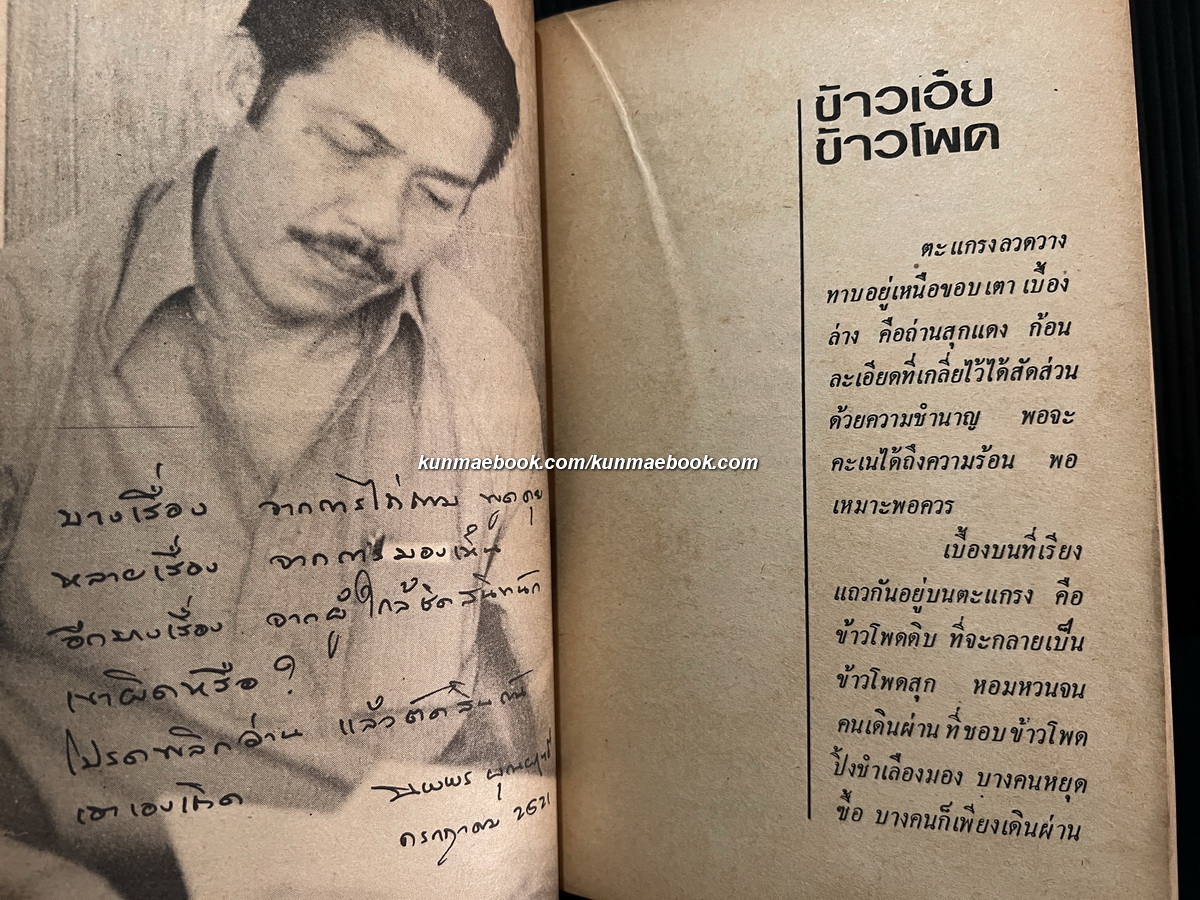 บางเรื่อง จากการไถ่ถาม พูดคุย
หลายเรื่อง จากการมองเห็น
อีกบางเรื่อง จากผู้ใกล้ชิดสนิทนัก
เขาผิดหรือ?
โปรดพลิกอ่าน แล้วตัดสินกัน
เอาเองเถิด
กรกฎาคม 2521
kunmaebook.com/kunmaebook.com
ข้าวเอ๋ย
ข้าวโพด
ตะแกรงลวดวาง
ทาบอยู่เหนือขอบเตา เบื้อง
ล่าง คือถ่านสุกแดง ก้อน
ละเอียดที่เกลี่ยไว้ได้สัดส่วน
ด้วยความชำนาญ พอจะ
คะเนได้ถึงความร้อน พอ
เหมาะพอควร
เบื้องบนที่เรียง
แถวกันอยู่บนตะแกรง คือ
ข้าวโพดดิบ ที่จะกลายเป็น
ข้าวโพดสุก หอมหวนจน
คนเดินผ่าน ที่ชอบข้าวโพด
ปิ้งชำเลืองมอง บางคนหยุด
ซื้อ บางคนก็เพียงเดินผ่าน